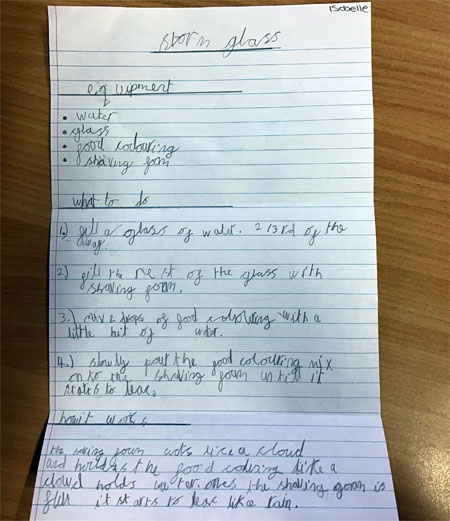 Isabelle
storm glass
equipment
• water
• glass
• food colouring
• shaving foam
what to do
1.) fill a glass of water. 2/3rd of the
way
2) fill the rest of the glass with
shaving foam.
3.) mix drops of food colouring with a
little bit of water.
4.) slowly pour the food colouring mix
on to the shaving foam untill it
starts to leac.
how it works
the shaving foam acts like a cloud
and holdes the food coloring like a
cloud holds water. ones the shaving foam is
full it starts to leac like rain.